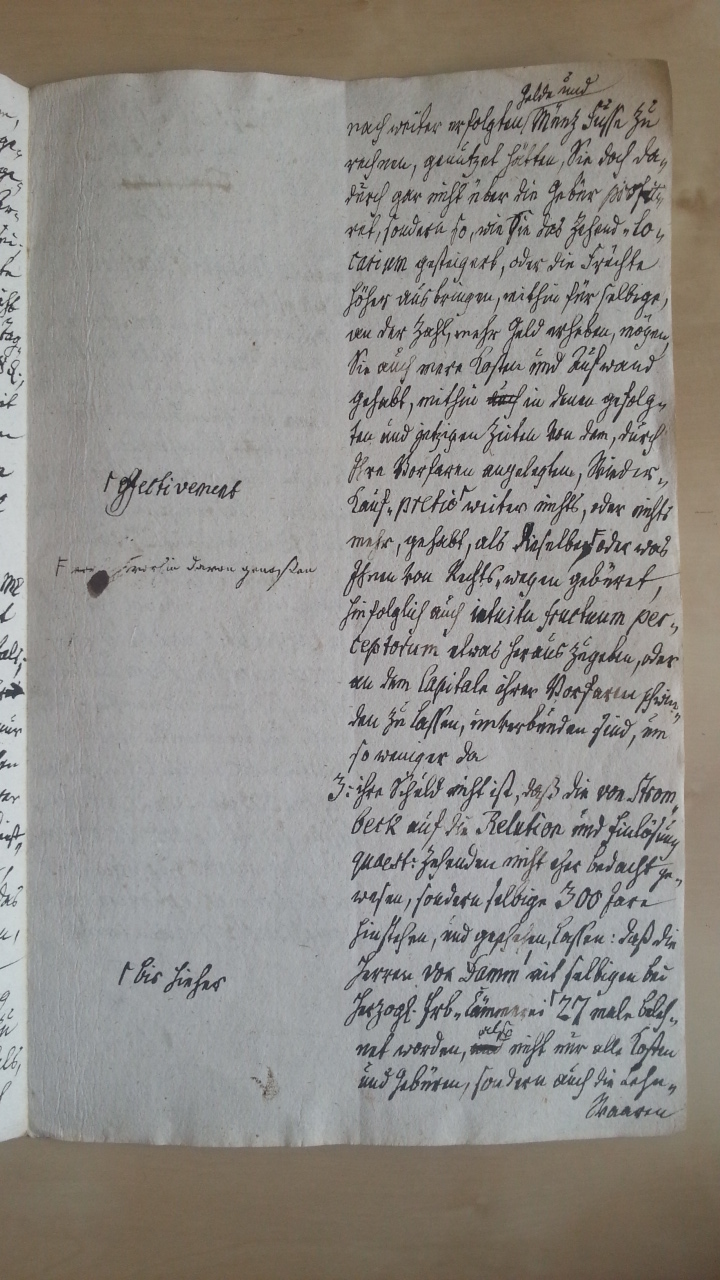 Gelde und
nach weiter erfolgten Müntz Fuße zu
rechnen, genutzet hätten, Sie doch da-
durch gar nicht über die Gebür profiti-
ret, sondern so, wie Sie das Zehend-lo-
carium gesteigert, oder die Früchte
höher ausbringen, mithin für selbige,
an der Zahl, mehr Geld erheben, mögen,
Sie auch mere Kosten und Aufwand
gehabt, mithin in denen gefolg-
ten und jetzigen Zeiten von dem, durch
Ihre Vorfaren angelegten, Wieder-
effectivement
Kauf-pretio weiter nichts, oder nichts
mehr, gehabt, als dieselben oder was
vorhin davon genoßen
Ihnen von Rechts, wegen gebüret,
hinfolglich auch intuitu fructuum per-
ceptorum etwas heraus zugeben, oder
an dem Capitale ihrer Vorfaren schwin-
den zu lassen, unverbunden sind, um
so weniger da
3: ihre Schuld nicht ist, daß die von Strom
beck auf die Relution und Einlösung
quaest: Zehenden nicht eher bedacht ge-
wesen, sondern selbige 300 Jare
hinstehen, und geschehen, lassen: daß die
Herren von Damm mit selbigen bei
bis hieher
Herzogl. Erb-Cämmerei 27 male beleh-
net worden, nicht nur alle Kosten
und Gebüren, sondern auch die Lehn-
Waaren